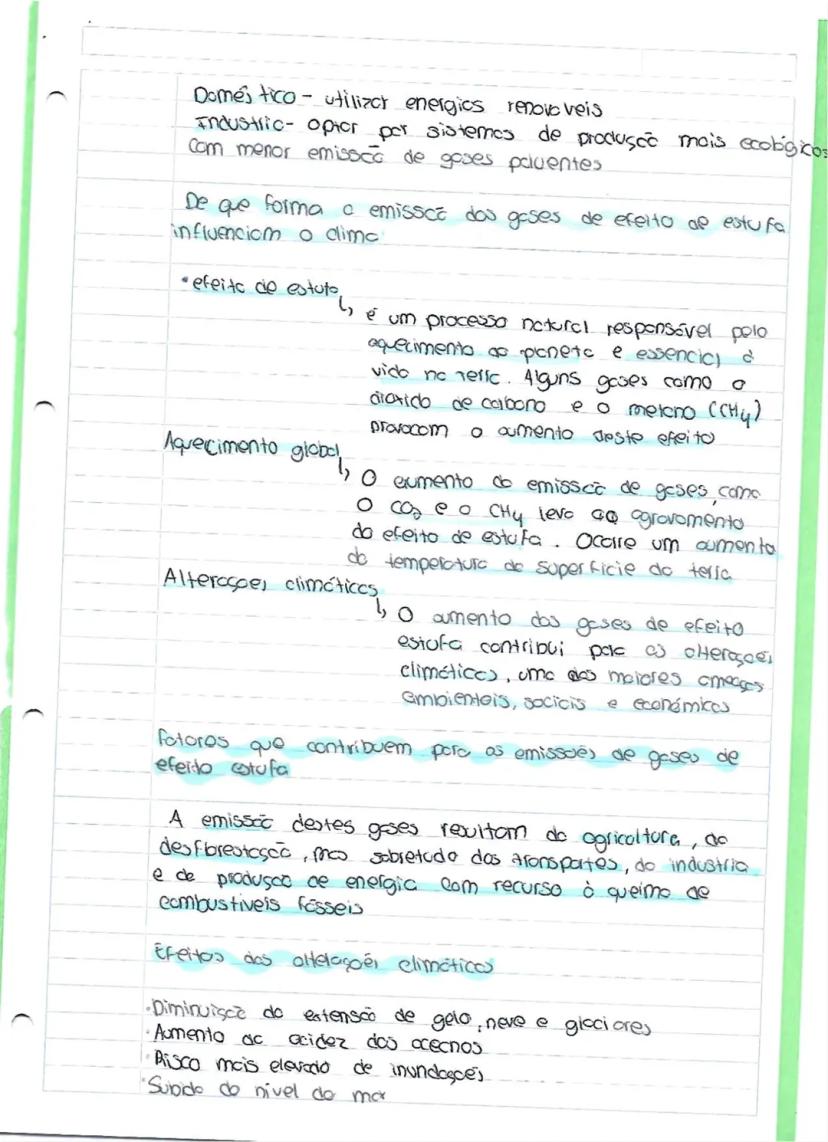 Doméstico - utilizar energias renováveis
Industria - optar por sistemas de produção mais ecológicos
com menor emissão de gases poluentes
De que forma a emissão dos gases de efeito de estufa
influenciam o clima
• efeito de estufa
↳ é um processo natural responsável pelo
aquecimento do planeta e essencial à
vida na terra. Alguns gases como o
dióxido de carbono e o metano (CH4)
provocam o aumento deste efeito
Aquecimento global
↳ O aumento da emissão de gases, como
o CO2 e o CH4 leva ao agravamento
do efeito de estufa. Ocorre um aumento
da temperatura da superfície da terra
Alterações climáticas
↳ O aumento dos gases de efeito
estufa contribui para as alterações
climáticas, uma das maiores ameaças
ambientais, sociais e económicas
fatores que contribuem para as emissões de gases de
efeito estufa
A emissão destes gases resultam da agricoltura, da
desflorestação, mas sobretudo dos transportes, da industria
e da produção de energia com recurso à queima de
combustiveis fósseis
Efeitos das alterações climáticas
• Diminuição da extensão de gelo, neve e glaciares
• Aumento da acidez dos oceanos
• Risco mais elevado de inundações
• Subida do nível do mar